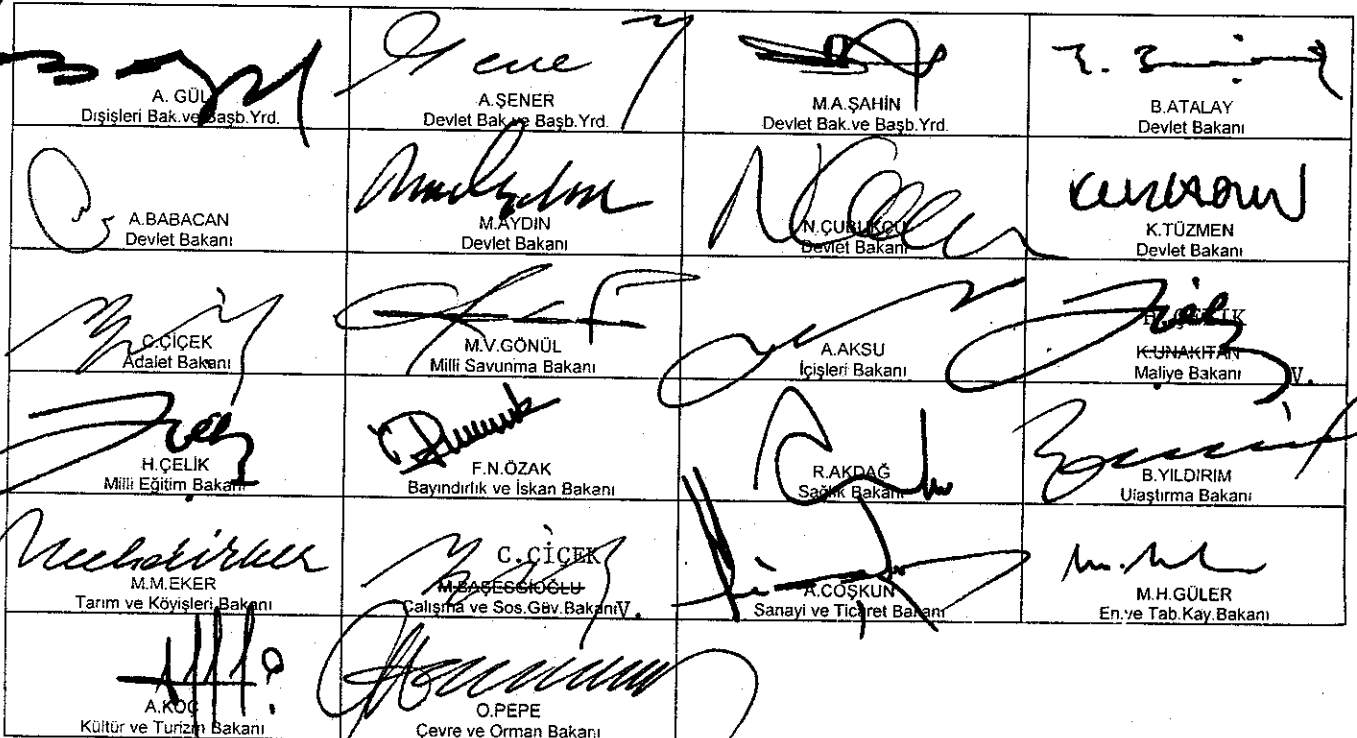 A. GÜL
Dışişleri Bak.ve Başb.Yrd.
A.ŞENER
Devlet Bak.ve Başb.Yrd.
M.A.ŞAHİN
Devlet Bak.ve Başb.Yrd.
B.ATALAY
Devlet Bakanı
A.BABACAN
Devlet Bakanı
M.AYDIN
Devlet Bakanı
N.ÇUBUKÇU
Devlet Bakanı
K.TÜZMEN
Devlet Bakanı
C.ÇİÇEK
Adalet Bakanı
M.V.GÖNÜL
Milli Savunma Bakanı
A.AKSU
İçişleri Bakanı
H.ÇELİK
K.UNAKITAN
Maliye Bakanı V.
H.ÇELİK
Milli Eğitim Bakanı
F.N.ÖZAK
Bayındırlık ve İskan Bakanı
R.AKDAĞ
Sağlık Bakanı
B.YILDIRIM
Ulaştırma Bakanı
M.M.EKER
Tarım ve Köyişleri Bakanı
C.ÇİÇEK
M.BAŞESGİOĞLU
Çalışma ve Sos.Güv.Bakanı V.
A.COŞKUN
Sanayi ve Ticaret Bakanı
M.H.GÜLER
En.ve Tab.Kay.Bakanı
A.KOÇ
Kültür ve Turizm Bakanı
O.PEPE
Çevre ve Orman Bakanı